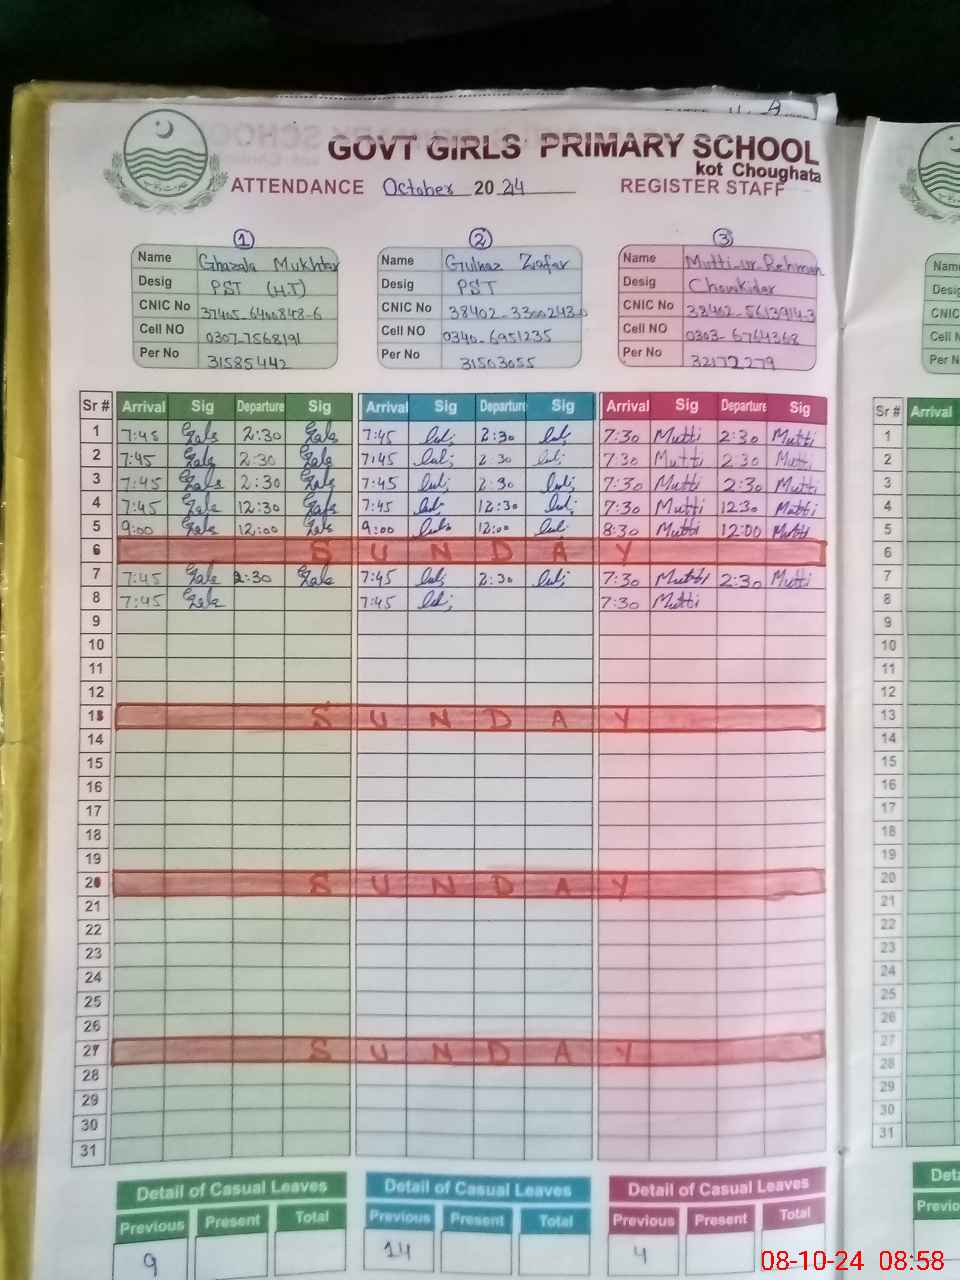 GOVT GIRLS PRIMARY SCHOOL
kot Choughata
ATTENDANCE October 20 24 REGISTER STAFF
1 2 3
Name Ghazala Mukhtar Name Gulnaz Zafar Name Mutti-ur-Rehman Name
Desig PST (H.T) Desig PST Desig Chowkidar Desig
CNIC No 37405-6400848-6 CNIC No 38402-3300243-0 CNIC No 38402-5613914-3 CNIC
Cell NO 0307-7568191 Cell NO 0340-6951235 Cell NO 0303-6764368 Cell N
Per No 31585442 Per No 31503055 Per No 32172279 Per N
Sr # Arrival Sig Departure Sig Arrival Sig Departure Sig Arrival Sig Departure Sig Sr # Arrival
1 7:45 2:30 7:45 2:30 7:30 Mutti 2:30 Mutti 1
2 7:45 2:30 7:45 2:30 7:30 Mutti 2:30 Mutti 2
3 7:45 2:30 7:45 2:30 7:30 Mutti 2:30 Mutti 3
4 7:45 12:30 7:45 12:30 7:30 Mutti 12:30 Mutti 4
5 9:00 12:00 9:00 12:00 8:30 Mutti 12:00 Mutti 5
6 SUNDAY 6
7 7:45 2:30 7:45 2:30 7:30 Mutti 2:30 Mutti 7
8 7:45 7:45 7:30 Mutti 8
9 9
10 10
11 11
12 12
13 SUNDAY 13
14 14
15 15
16 16
17 17
18 18
19 19
20 SUNDAY 20
21 21
22 22
23 23
24 24
25 25
26 26
27 SUNDAY 27
28 28
29 29
30 30
31 31
Detail of Casual Leaves Detail of Casual Leaves Detail of Casual Leaves Deta
Previous Present Total Previous Present Total Previous Present Total Previo
9 14 4
08-10-24 08:58